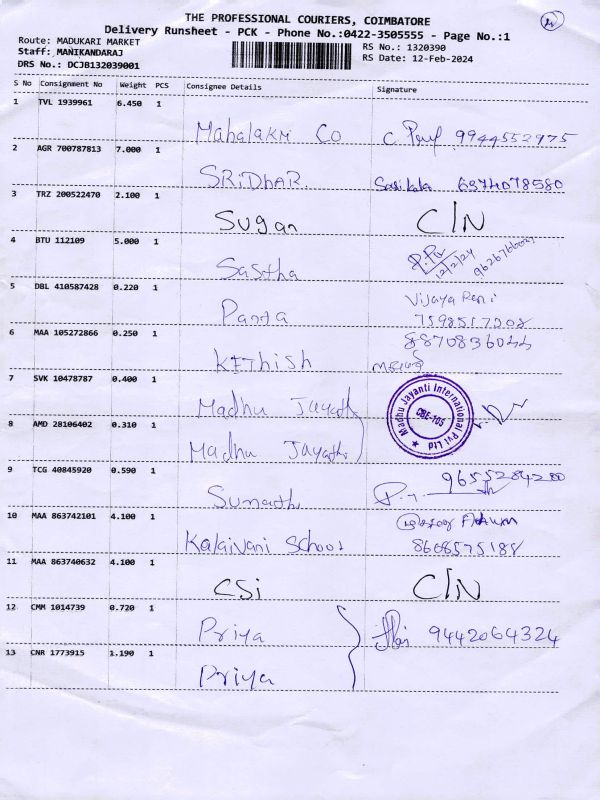 THE PROFESSIONAL COURIERS, COIMBATORE
Delivery Runsheet - PCK - Phone No.:0422-3505555 - Page No.:1
Route: MADUKARI MARKET
RS No.: 1320390
Staff: MANIKANDARAJ
RS Date: 12-Feb-2024
DRS No.: DCJB132039001
S No Consignment No Weight PCS Consignee Details Signature
1 TVL 1939961 6.450 1
Mahalakmi Co 9944552975
2 AGR 700787813 7.000 1
SRiDhAR Sasikala 6374078580
3 TRZ 200522470 2.100 1
Sugan C/N
4 BTU 112109 5.000 1
Sastha 12/2/24
5 DBL 410587428 0.220 1
Vijaya Rani
7598517208
6 MAA 105272866 0.250 1
8870836044
KEThish
7 SVK 10478787 0.400 1
Madhu Jayathi
Madhu Jayanti International Pvt Ltd
CBE-105
8 AMD 28106402 0.310 1
Madhu Jayathi
9 TCG 40845920 0.590 1
9655284280
Sumathi
10 MAA 863742101 4.100 1
Kalaivani School 8608575188
11 MAA 863740632 4.100 1
CSi C/N
12 CMM 1014739 0.720 1
Priya 9442064324
13 CNR 1773915 1.190 1
Priya